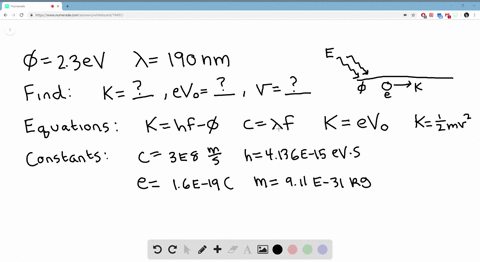 ϕ = 2.3eV λ = 190 nm
E
ϕ e K
Find: K = ? , eV₀ = ? , v = ?
Equations: K = hf - ϕ c = λf K = eV₀ K = ½mv²
Constants: c = 3E8 m/s h = 4.136E-15 eV·s
e = 1.6E-19 C m = 9.11 E-31 kg